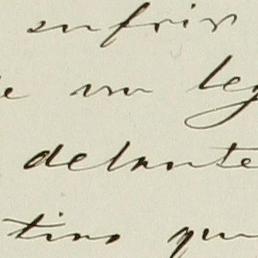 sufrir
e un leg
delante
tino que